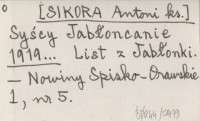 [SIKORA Antoni ks.]
Syćcy Jabłoncanie
1919... List z Jabłonki.
— Nowiny Spisko-Orawskie
1, nr 5.